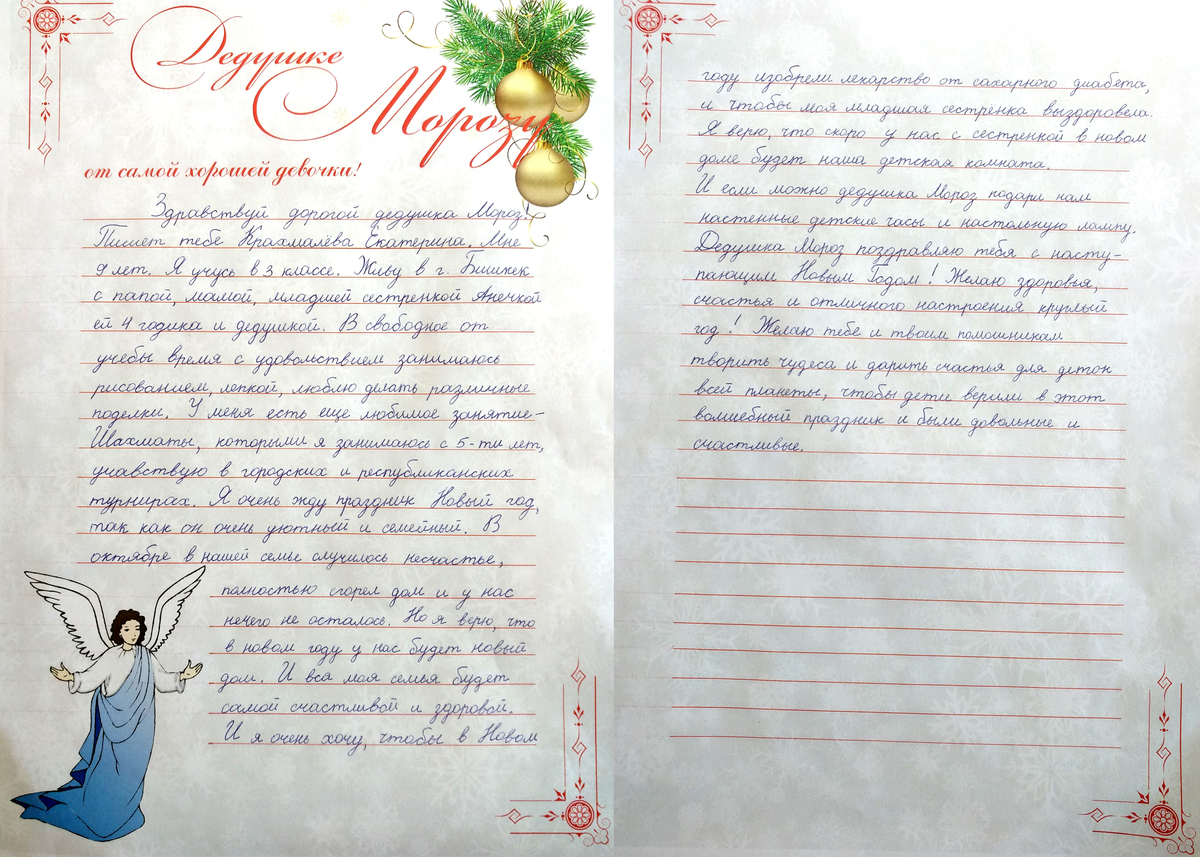 Дедушке
Морозу
от самой хорошей девочки!
Здравствуй дорогой дедушка Мороз!
Пишет тебе Крахмалёва Екатерина. Мне
9 лет. Я учусь в 3 классе. Живу в г. Бишкек
с папой, мамой, младшей сестренкой Анечкой
ей 4 годика и дедушкой. В свободное от
учебы время с удовольствием занимаюсь
рисованием, лепкой, люблю делать различные
поделки. У меня есть еще любимое занятие-
Шахматы, которыми я занимаюсь с 5-ти лет,
учавствую в городских и республиканских
турнирах. Я очень жду праздник Новый год,
так как он очень уютный и семейный. В
октябре в нашей семье случилось несчастье,
полностью сгорел дом и у нас
нечего не осталось. Но я верю, что
в новом году у нас будет новый
дом. И вся моя семья будет
самой счастливой и здоровой.
И я очень хочу, чтобы в Новом
году изобрели лекарство от сахарного диабета,
и чтобы моя младшая сестрёнка выздоровела.
Я верю, что скоро у нас с сестренкой в новом
доме будет наша детская комната.
И если можно дедушка Мороз подари нам
настенные детские часы и настольную лампу.
Дедушка Мороз поздравляю тебя с насту-
пающим Новым Годом! Желаю здоровья,
счастья и отличного настроения круглый
год! Желаю тебе и твоим помошникам
творить чудеса и дарить счастья для деток
всей планеты, чтобы дети верили в этот
волшебный праздник и были довольные и
счастливые.